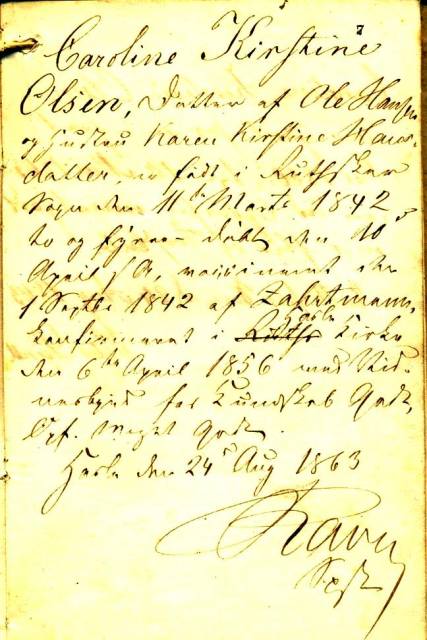 Caroline Kirstine
Olsen, Datter af Ole Hansen
og Hustru Karen Kirstine Hans-
datter, er født i Ruthsker
Sogn den 11te Marts 1842
to og fyrre - døbt den 10
April s. A., vaccineret den
1 Septbr 1842 af Zahrtmann,
Konfirmeret i Hasle Kirke
den 6te April 1856 med Vid-
nesbyrd for Kundskab Godt,
Opf. Meget Godt.
Hasle den 24 Aug 1863
Ravn